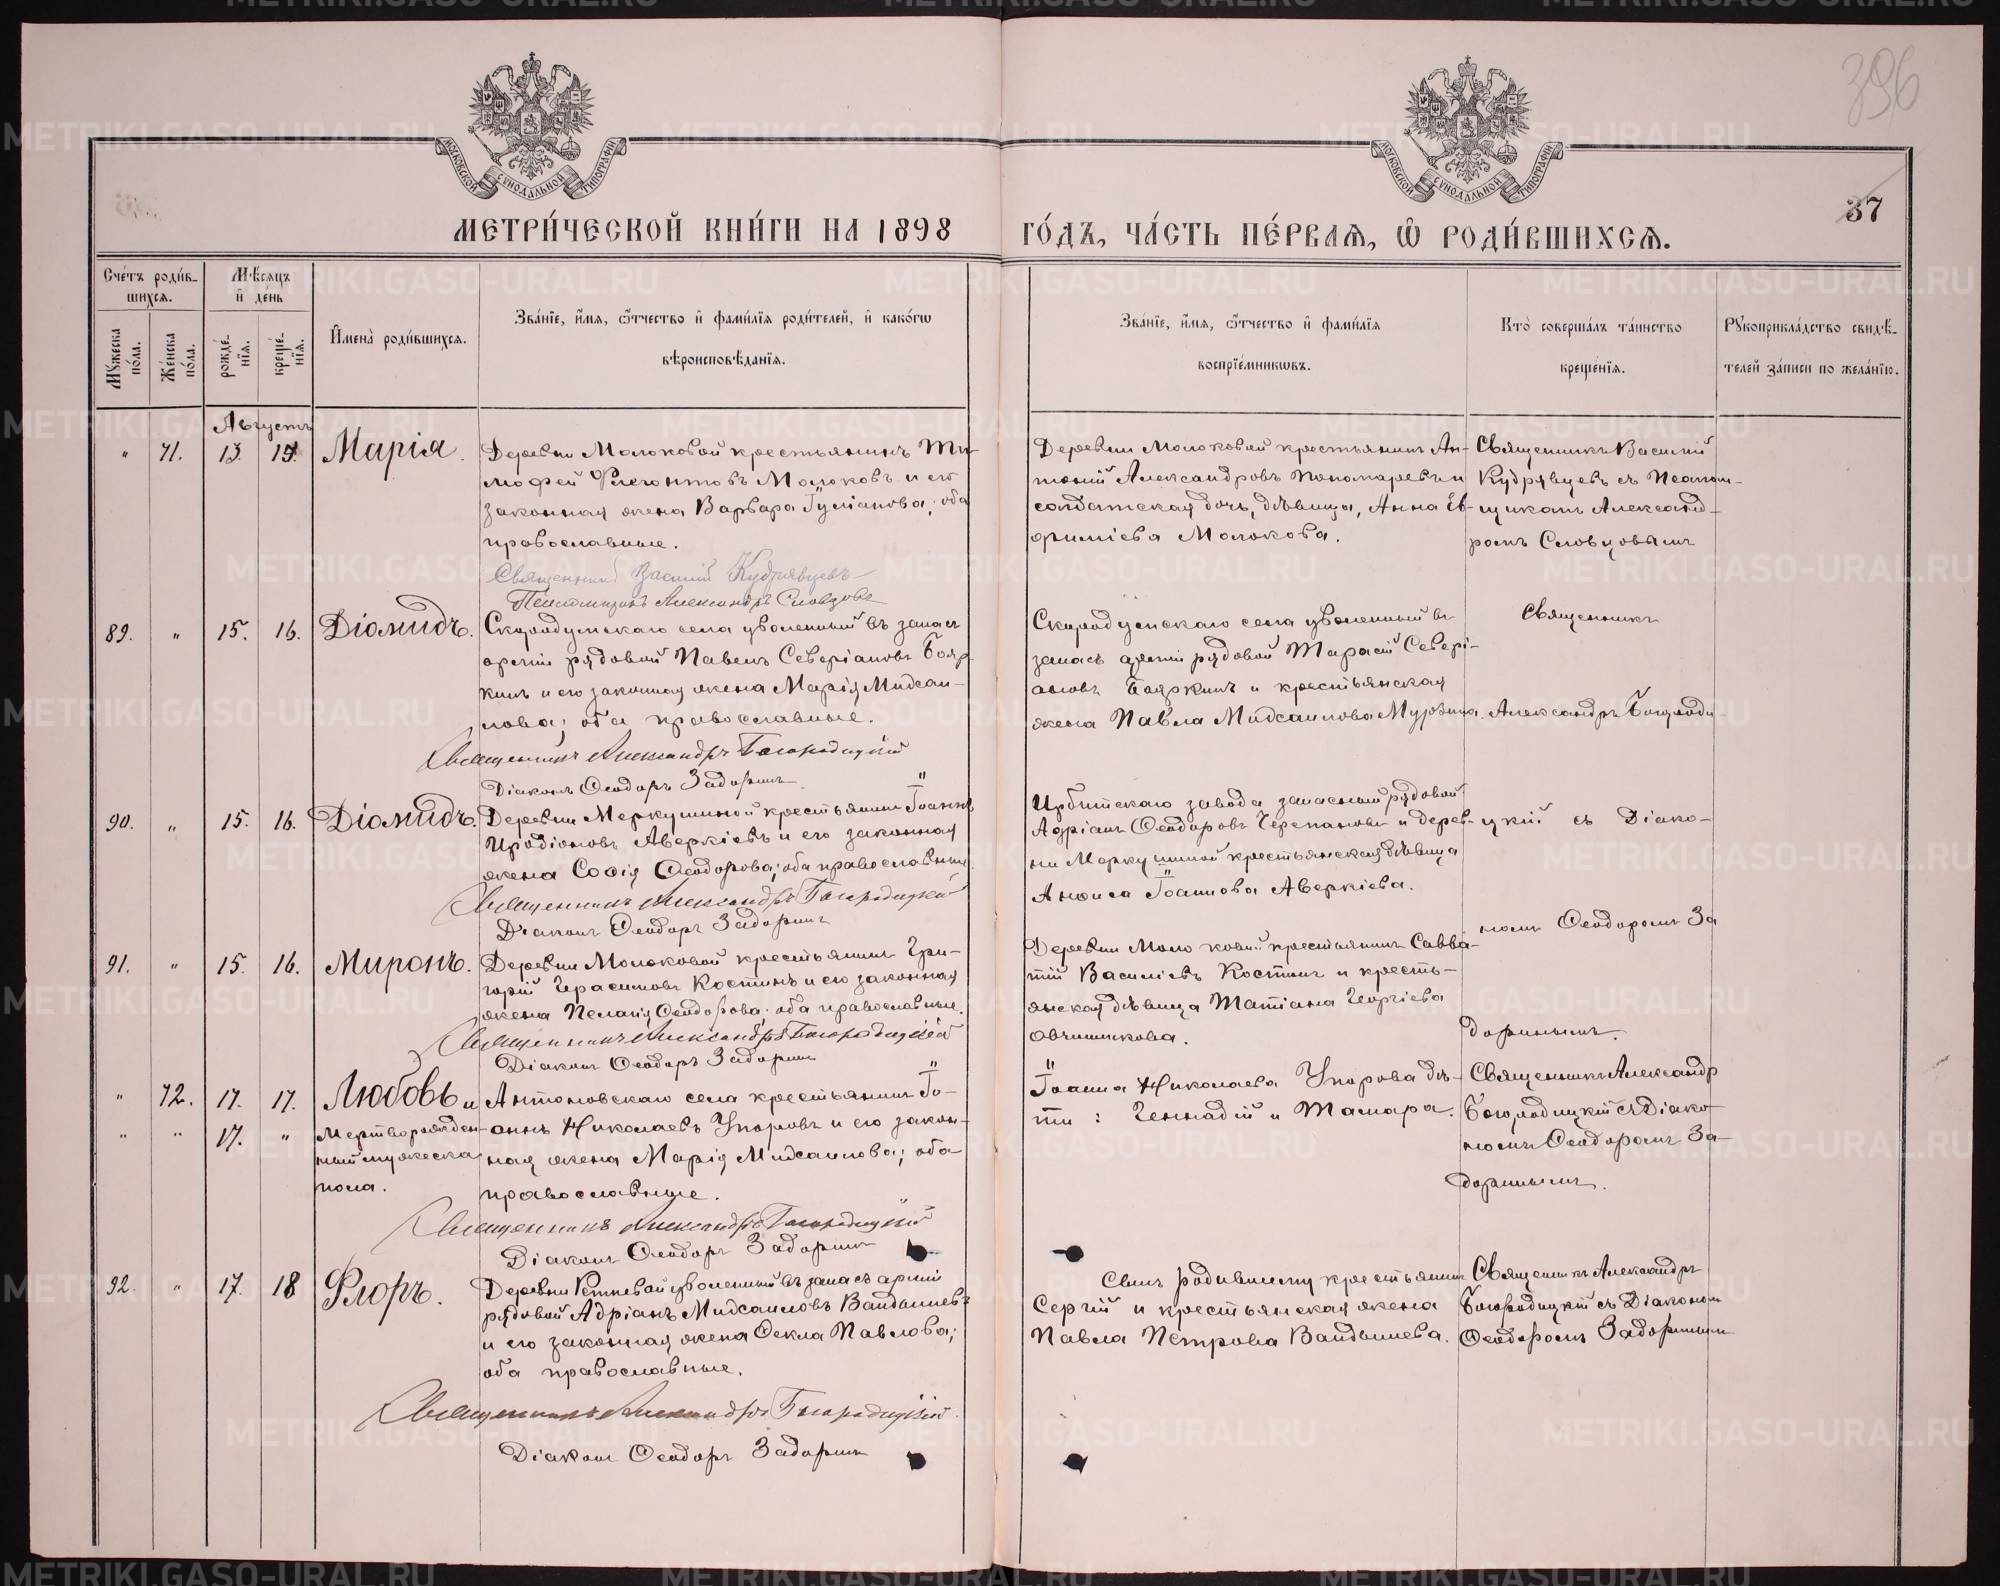 396
37
МОСКОВСКОЙ СѴНОДАЛЬНОЙ ТИПОГРАФІИ
МОСКОВСКОЙ СѴНОДАЛЬНОЙ ТИПОГРАФІИ
МЕТРИ́ЧЕСКОЙ КНИ́ГИ НА 1898
ГО́ДЪ, ЧА́СТЬ ПЕ́РВАѦ, Ѡ҆ РОДИ́ВШИХСѦ.
Сче́тъ роди́в-
шихсѧ.
Мꙋ́жеска по́ла.
Же́нска по́ла.
Мѣ́сѧцъ
и҆ де́нь
рожде́-нїѧ.
креще́-нїѧ.
И҆мена̀ роди́вшихсѧ.
Зва́нїе, и҆́мѧ, ѻ҆́тчество и҆ фами́лїѧ роди́телей, и҆ како́гѡ
вѣроисповѣ́данїѧ.
Зва́нїе, и҆́мѧ, ѻ҆́тчество и҆ фами́лїѧ
воспрїе́мникѡвъ.
Кто̀ соверша́лъ та́инство
креще́нїѧ.
Рꙋкоприкла́дство свидѣ́-
телей за́писи по жела́нїю.
Августъ
" 71. 13. 15. Марія.
Деревни Молоковой крестьянинъ Ти-
мофей Флегонтовъ Молоковъ и его
законная жена Варвара Іуліанова; оба
православные.
Священникъ Василій Кудрявцевъ
Псаломщикъ Александръ Словцовъ
Деревни Молоковой крестьянинъ Ан-
тоній Александровъ Пономаревъ и
солдатская дочь, дѣвица, Анна Ев-
фиміева Молокова.
Священникъ Василій
Кудрявцевъ съ Псалом-
щикомъ Александ-
ромъ Словцовымъ
89. " 15. 16. Діомидъ.
Скородумскаго села уволенный въ запасъ
арміи рядовой Павелъ Северіановъ Бояр-
кинъ и его законная жена Марія Михаи-
лова; оба православные.
Священникъ Александръ Богородицкій
Діаконъ Ѳеодоръ Задоринъ
Скородумскаго села уволенный въ
запасъ арміи рядовой Тарасій Севері-
ановъ Бояркинъ и крестьянская
жена Павла Михаилова Мурзина.
Священникъ
Александръ Богороди-
90. " 15. 16. Діомидъ.
Деревни Меркушиной крестьянинъ Іоаннъ
Иродіоновъ Аверкіевъ и его законная
жена Софія Ѳеодорова; оба православные
Священникъ Александръ Богородицкій
Діаконъ Ѳеодоръ Задоринъ
Ирбитскаго завода запасный рядовой
Адріанъ Ѳеодоровъ Черепановъ и дерев-
ни Меркушиной крестьянская дѣвица
Анфиса Іоаннова Аверкіева.
цкій съ Діако-
номъ Ѳеодоромъ За
91. " 15. 16. Миронъ.
Деревни Молоковой крестьянинъ Гри-
горій Герасимовъ Костинъ и его законная
жена Пелагія Ѳеодорова; оба православные.
Священникъ Александръ Богородицкій
Діаконъ Ѳеодоръ Задоринъ
Деревни Молоковой крестьянинъ Савва-
тій Василіевъ Костинъ и кресть-
янская дѣвица Татіана Георгіева
Овчинникова.
доринымъ.
" 72. 17. 17. Любовь и
" " 17. " Мертворожден-
ный мужеска
пола.
Антоновскаго села крестьянинъ Іо-
аннъ Николаевъ Упоровъ и его закон-
ная жена Марія Михаилова; оба
православные.
Священникъ Александръ Богородицкій
Діаконъ Ѳеодоръ Задоринъ
Іоанна Николаева Упорова дѣ-
ти: Геннадій и Тамара.
Священникъ Александръ
Богородицкій съ Діако-
номъ Ѳеодоромъ За-
доринымъ.
92. " 17. 18 Флоръ.
Деревни Ретневой уволенный въ запасъ арміи
рядовой Адріанъ Михаиловъ Вандышевъ
и его законная жена Ѳекла Павлова;
оба православные.
Священникъ Александръ Богородицкій
Діаконъ Ѳеодоръ Задоринъ
Сынъ родившему крестьянинъ
Сергій и крестьянская жена
Павла Петрова Вандышева.
Священникъ Александръ
Богородицкій съ Діаконом
Ѳеодоромъ Задоринымъ